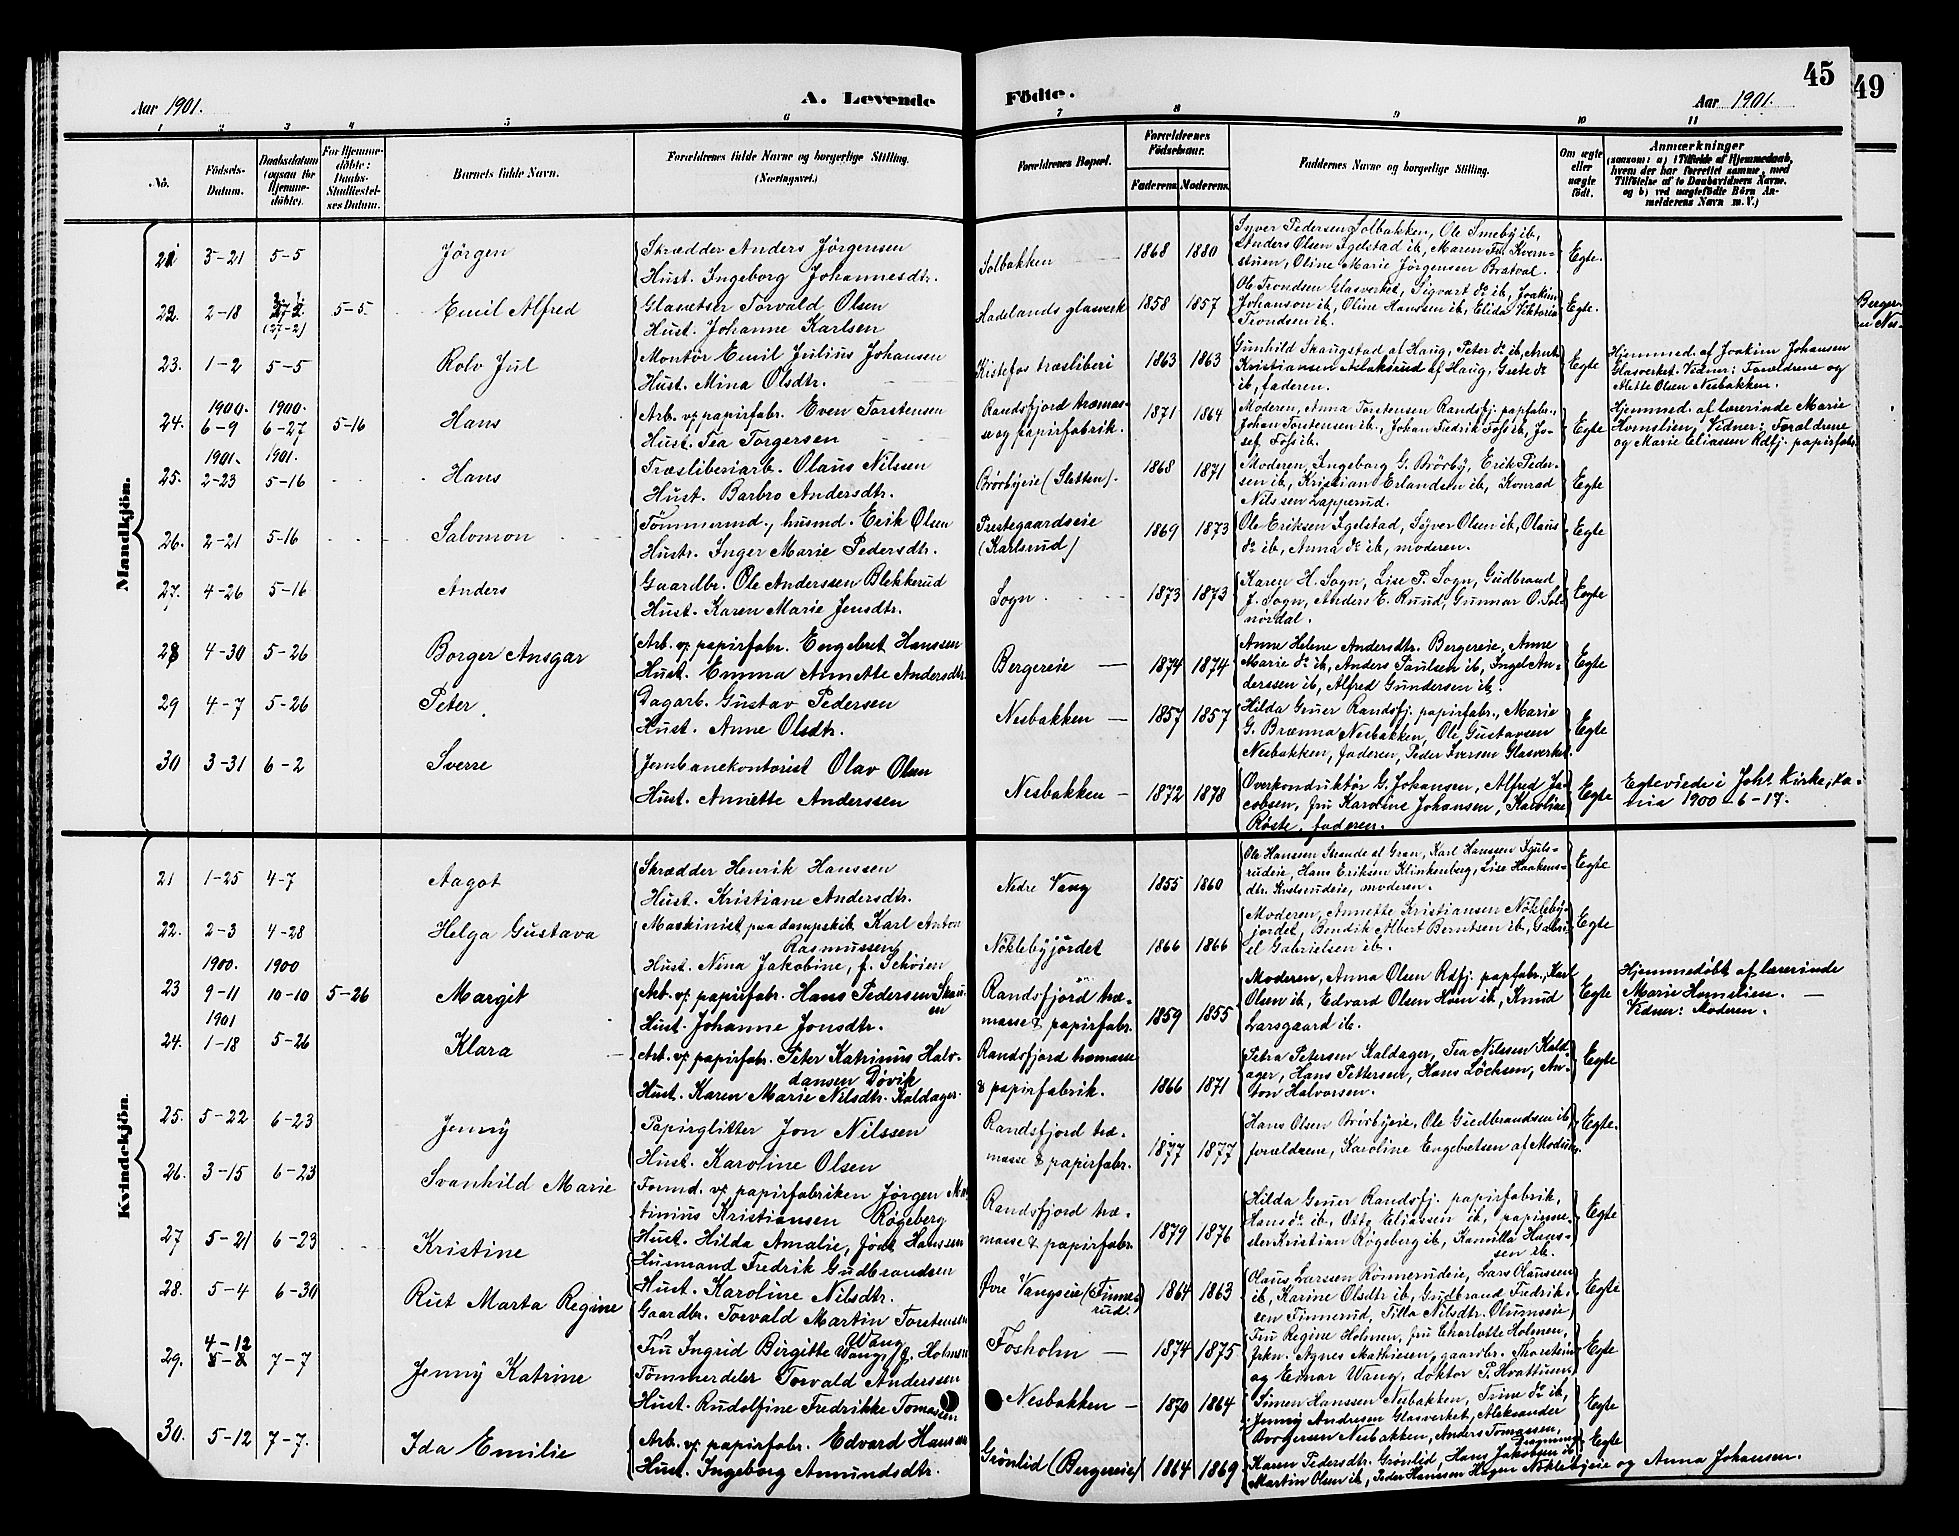 45
49
Aar 1901.
A. Levende Födte.
Aar 1901.
1 2 3 4 5 6 7 8 9 10 11
No.
Födsels-Datum.
Daabsdatum (ogsaa for Hjemmedöbte).
For Hjemmedöbte: Daabs-Stadfæstelses Datum.
Barnets fulde Navn.
Forældrenes fulde Navne og borgerlige Stilling. (Næringsvei.)
Forældrenes Bopæl.
Forældrenes Födselsaar.
Faderens. Moderens.
Faddernes Navne og borgerlige Stilling.
Om ægte eller uægte födt.
Anmærkninger
(saasom: a) i Tilfælde af Hjemmedaab,
hvem der har forrettet samme, med
Tilföielse af to Daabsvidners Navne,
og b) ved uægtefödte Börn Anmelderens Navn m. V.)
Mandkjön.
21 3-21 5-5 Jörgen
Skrædder Anders Jörgensen
Hust. Ingeborg Johannesdtr.
Solbakken 1868 1880
Syver Pedersen Solbakken, Ole Smeby ib,
Anders Olsen Egelstad ib, Maren Fr. Kvern-
stuen, Oline Marie Jörgensen Bratval.
Egte.
22. 2-18 (27-2) 5-5. Emil Alfred
Glasætser Torvald Olsen
Hust. Johanne Karlsen
Hadelands glasverk 1858 1857
Ole Trondsen Glasverket, Sigvart do ib, Joakim
Johanson ib, Oline Hanssen ib, Elida Viktoria
Trondsen ib.
Egte.
23. 1-2 5-5 Rolv Jul
Montör Emil Julius Johansen
Hust. Mina Olsdtr.
Kistefos træsliberi 1863 1863
Gunhild Skaugstad af Haug, Peter do ib, Arnt
Kristiansen Alaksrud af Haug, Grete do
ib, faderen.
Egte
Hjemmed. af Joakim Johansen
Glasverket. Vidner: Forældrene og
Mette Olsen Nesbakken.
1900. 1900.
24. 6-9 6-27 5-16 Hans
Arb. v/ papirfabr. Even Torstensen
Hust. Tea Torgersen
Randsfjord træmas-
se og papirfabrik. 1871 1864
Moderen, Anna Torstensen Randsfj. papfabr.,
Johan Torstensen ib., Johan Fredrik Foss ib, Jo-
sef Foss ib.
Egte
Hjemmed. af lærerinde Marie
Hornslien, Vidner: Forældrene
og Marie Eliassen Rdfj. papirfabr.
1901. 1901.
25. 2-23 5-16 Hans
Træsliberiarb. Olaus Nilsen
Hust. Barbro Andersdtr.
Brörbyeie (Sletten). 1868 1871
Moderen, Ingeborg G. Brörby, Erik Peder-
sen ib, Kristian Erlandsen ib, Konrad
Nilssen Lapperud.
Egte
26. 2-21 5-16 Salomon
Tömmermd., husmd. Erik Olsen
Hustr. Inger Marie Pedersdtr.
Prestegaardseie
(Karlsrud) 1869 1873
Ole Eriksen Egelstad, Syver Olsen ib, Olaus
do ib, Anna do ib, moderen.
Egte
27. 4-26 5-16 Anders
Gaardbr. Ole Anderssen Blekkerud
Hust. Karen Marie Jensdtr.
Sogn. 1873 1873
Karen H. Sogn, Lise P. Sogn, Gudbrand
J. Sogn, Anders E. Ruud, Gunnar O. Sol-
nördal.
Egte
28 4-30 5-26 Borger Ansgar
Arb. v/ papirfabr. Engebret Hanssen
Hust. Emma Annette Andersdtr.
Bergereie 1874 1874
Anne Helene Andersdtr. Bergereie, Anne
Marie do ib, Anders Paulsen ib, Ingel An-
derssen ib, Alfred Gundersen ib.
Egte
29 4-7 5-26 Peter
Dagarb. Gustav Pedersen
Hust. Anne Olsdtr.
Nesbakken 1857 1857
Hilda Gruer Randsfj. papirfabr., Marie
G. Brænna Nesbakken, Ole Gustavsen
Nesbakken, faderen, Peder Iversen Glasverket.
Egte
30 3-31 6-2 Sverre
Jernbanekontorist Olav Olsen
Hust. Annette Anderssen
Nesbakken 1872 1878
Overkonduktör G. Johansen, Alfred Ja-
cobsen, fru Karoline Johansen, Karoline
Röste, faderen.
Egte
Egteviede i Johs. Kirke, Kra-
nia 1900-6-17.
Kvindekjön.
21 1-25 4-7 Aagot
Skrædder Henrik Hanssen
Hust. Kristiane Andersdtr.
Nedre Vang 1855 1860
Ole Hanssen Strande af Gran, Karl Hanssen Iguls-
rudeie, Hans Eriksen Klinkenberg, Lise Haakens-
dtr. Kostsrudeie, moderen.
Egte
22. 2-3 4-28 Helga Gustava
Maskinist paa dampskib Karl Anton
Rasmussen
Hust. Nina Jakobine, f. Schöien
Nöklebyjordet 1866 1866
Moderen, Annette Kristiansen Nökleby-
jordet, Bendik Albert Berntsen ib, Gabri-
el Gabrielsen ib.
Egte
1900. 1900
23 9-11 10-10 5-26 Margit
Arb. v/ papirfabr. Hans Pedersen Skau-
en
Hust. Johanne Jonsdtr.
Randsfjord træ-
masse & papirfabr. 1859 1855
Moderen, Anna Olsen Rdfj. papfabr., Karl
Olsen ib, Edvard Olsen Horn ib, Knud
Larsgaard ib.
Egte
Hjemmedöbt af lærerinde
Marie Hornslien.
Vidner: Moderen.
1901
24. 1-18 5-26 Klara
Arb. v/ papirfabr. Peter Katrinus Halv-
dansen Dövik
Hust. Karen Marie Nilsdtr. Kaldager.
Randsfjord træmasse
& papirfabrik. 1866 1871
Petra Petersen Kaldager, Tea Nilssen Kald-
ager, Hans Pettersen, Hans Löchsen, An-
ton Halvorsen.
Egte
25. 5-22 6-23 Jenny
Papirglitter Jon Nilssen
Hust. Karoline Olsen
Randsfjord træ-
masse & papirfabr. 1877 1877
Hans Olsen Brörbyeie, Ole Gudbrandsen ib,
forældrene, Karoline Engebretsen af Modum.
Egte.
26. 3-15 6-23 Svanhild Marie
Formd. v/ papirfabriken Jörgen Mar-
tinius Kristiansen Rögeberg
Hust. Hilda Amalie, född Hanssen
Randsfjord træ-
masse & papirfabr. 1879 1876
Hilda Gruer Randsfj. papirfabrik,
Hans do ib, Otto Eliassen ib, papirme-
ster Kristian Rögeberg ib, Kamilla Hans-
sen ib.
Egte
27 5-21 6-23 Kristine
Husmand Fredrik Gudbrandsen
Hust. Karoline Nilsdtr.
Övre Vangseie (Finne-
rud.) 1864 1863
Olaus Larssen Rönnerudeie, Lars Olaussen
ib, Karine Olsdtr ib, Gudbrand Fredrik-
sen Finnerud, Tilla Nilsdtr. Olumseie
Egte
28. 5-4 6-30 Rut Marta Regine
Gaardbr. Torvald Martin Torstensen
Wang
Fru Ingrid Birgitte Wang, f. Holmen
Fosholm 1874 1875
Fru Regine Holmen, fru Charlotte Holmen,
frkn. Agnes Mathiesen, gaardbr. Thorstein
og Einar Wang, doktor P. Hvattum.
Egte
4-12
29. 5-8 7-7 Jenny Katrine
Tömmerdeler Torvald Anderssen
Hust. Rudolfine Fredrikke Tomassen
Nesbakken 1870 1864
Simen Hanssen Nesbakken, Trine do ib,
Jenny Andresen Glasverket, Aleksander
Borgersen Nesbakken, Anders Tomassen,
Egte
30. 5-12 7-7. Ida Emilie
Arb. v/ papirfabr. Edvard Hanssen
Hust. Ingeborg Amundsdtr.
Grönlid (Bergereie) 1864 1869
Karen Pedersdtr. Grönlid, Hans Jakobsen ib
Martin Olsen ib, Peder Hanssen Hagen Nöklebyeie og Anna Johansen.
Egte